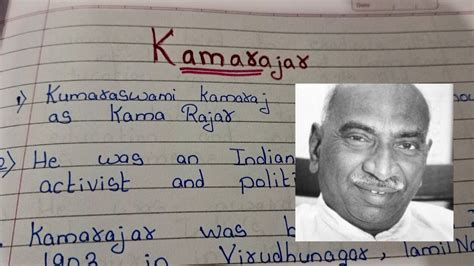 Date
Kamarajar
1) Kumaraswami Kamaraj
as Kama Rajar
2) He was an Indian
activist and polit
Kamarajar was b
1903 in Virudhunagar, Tamil Na